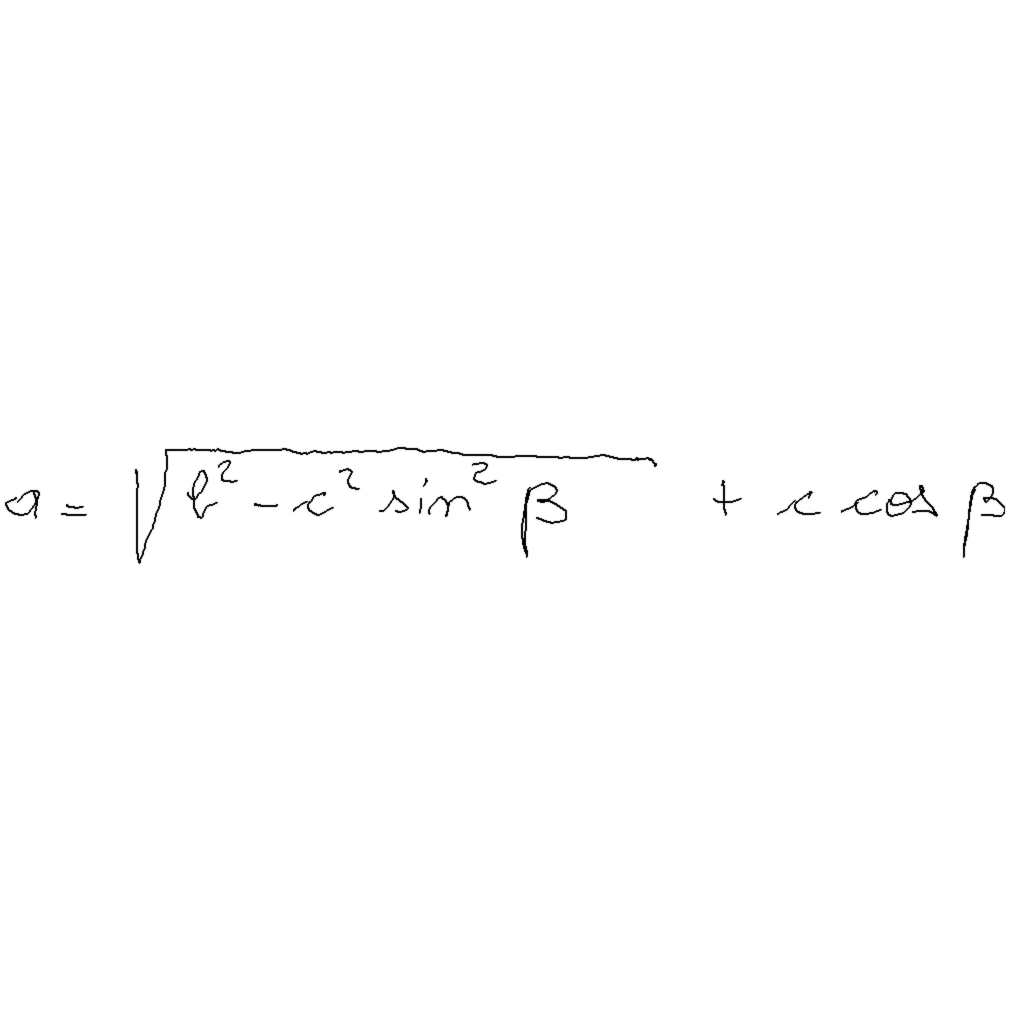 a = √(b² - c² sin² β) + c cos β